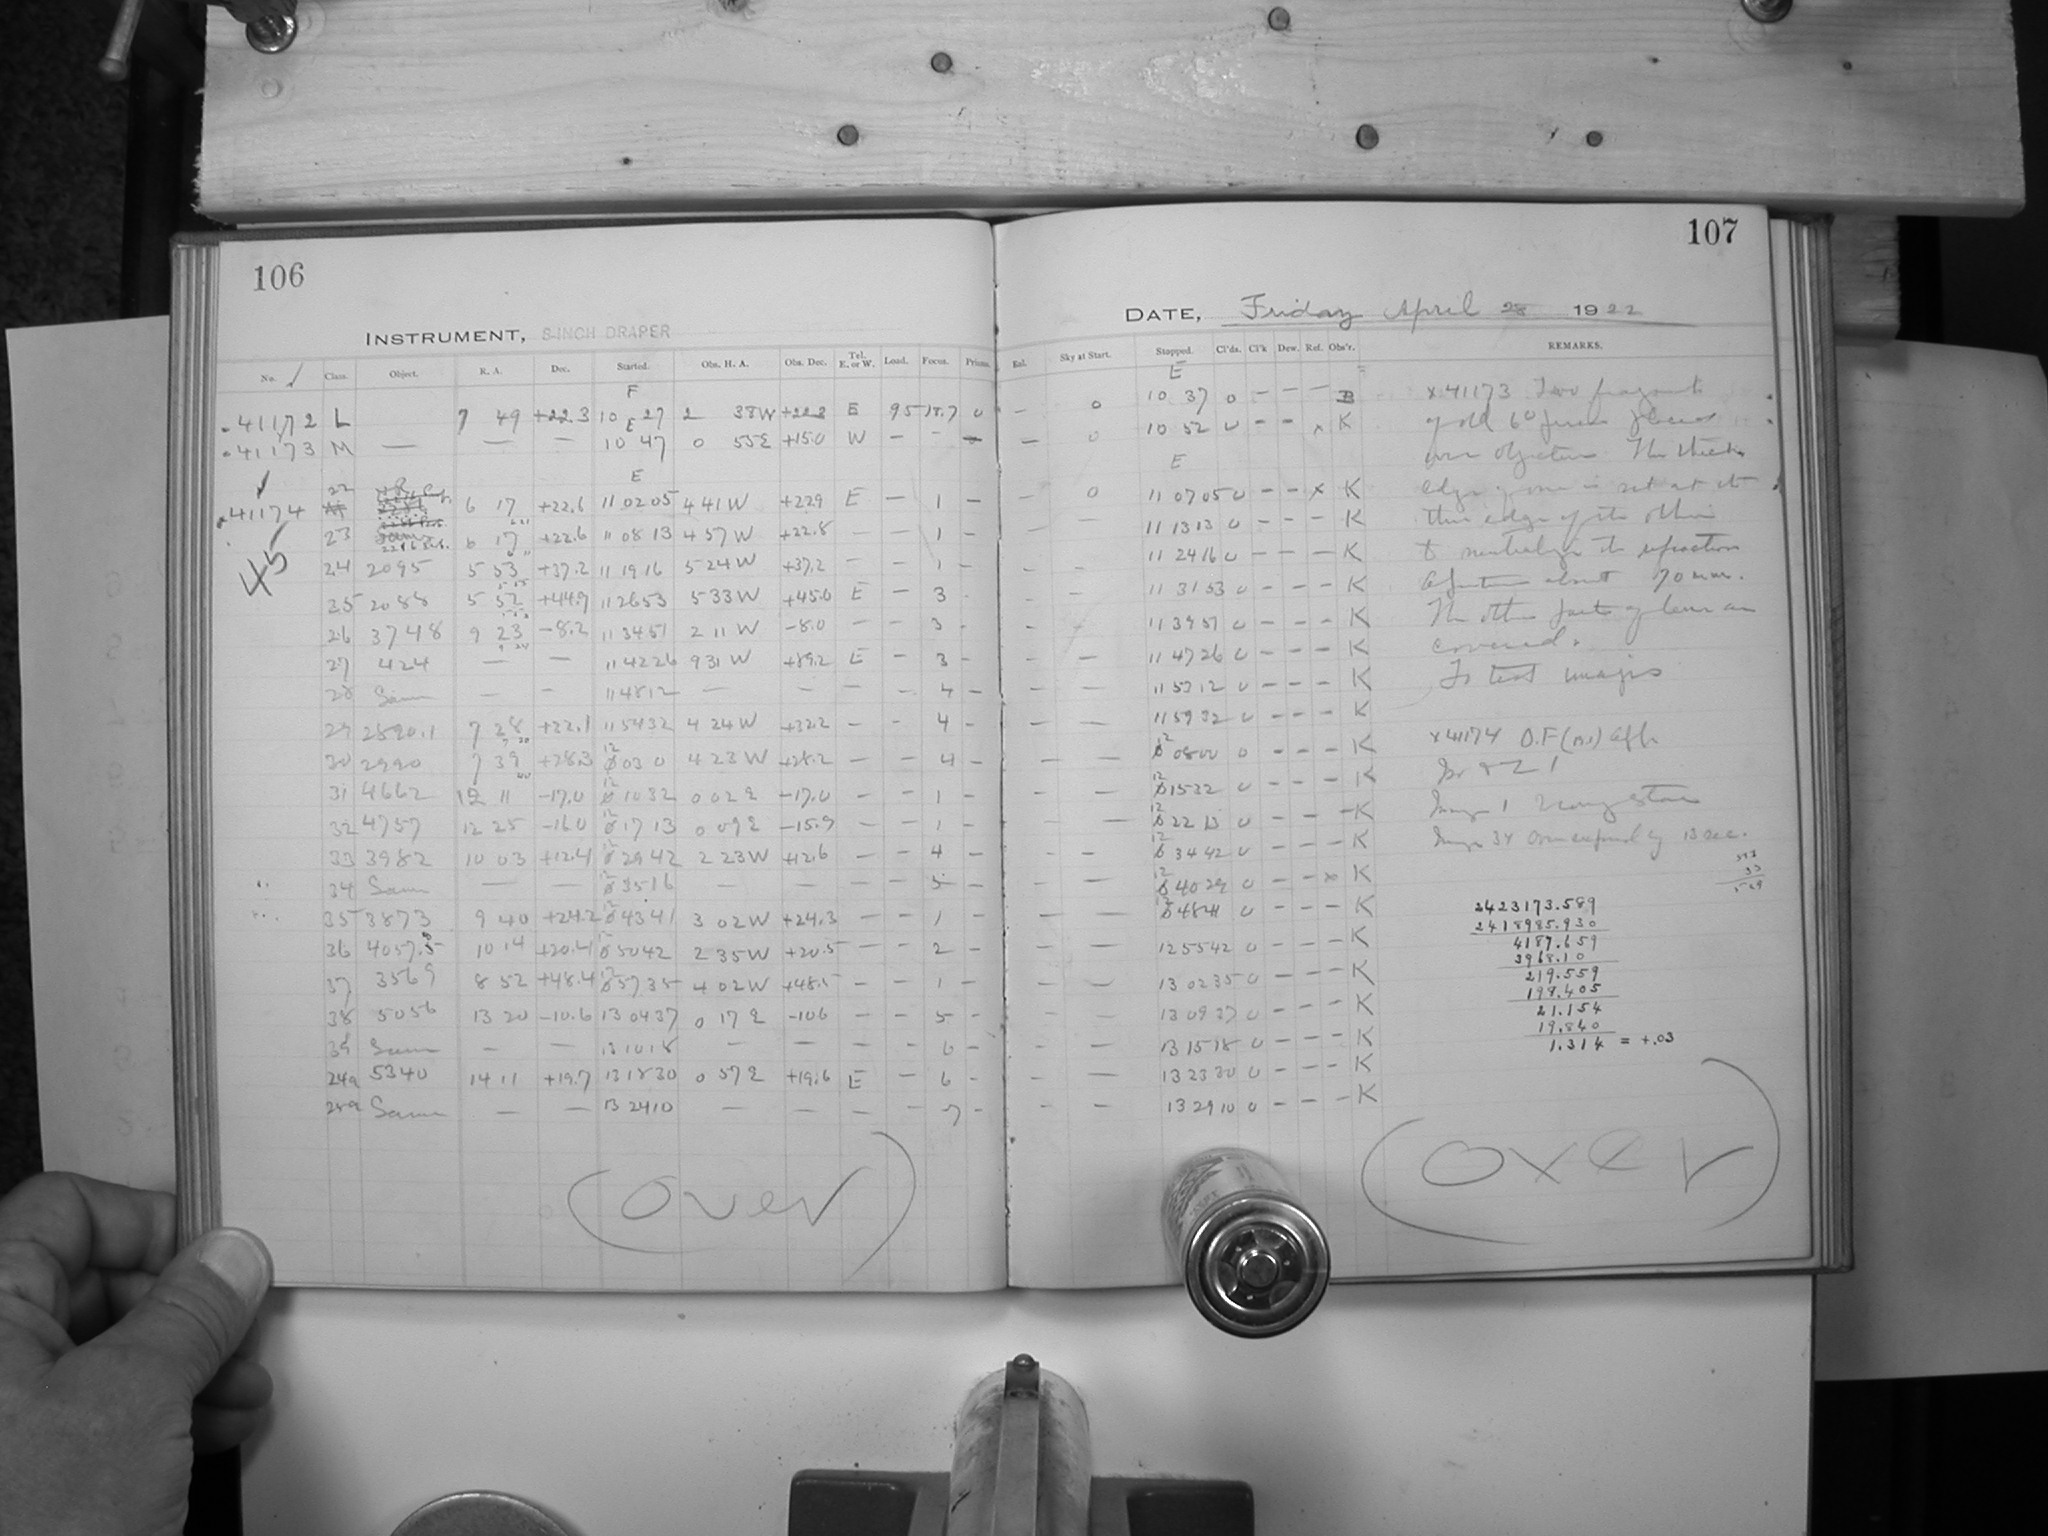 106
INSTRUMENT, 8-INCH DRAPER
No. Class. Object. R. A. Dec. Started. Obs. H. A. Obs. Dec. Tel. E. or W. Load. Focus. Prisms.
F
41172 L 7 49 +22.3 10 27 2 38W +22.3 E 95 0
E
41173 M — — — 10 47 0 55E +15.0 W —
E
22
41174 6 17 +22.6 11 02 05 4 41 W +22.9 E — 1 —
23 6 17 +22.6 11 08 13 4 57 W +22.8 — — 1 —
24 2095 5 53 +37.2 11 19 16 5 24 W +37.2 — — 1 —
45
25 2088 5 52 +44.9 11 26 53 5 33 W +45.0 E — 3
26 3748 9 23 -8.2 11 34 51 2 11 W -8.0 — — 3 -
27 424 — — 11 42 26 9 31 W +89.2 E — 3 -
28 Same — — 11 48 12 — — — — 4 —
29 2890.1 7 28 +32.1 11 54 32 4 24 W +32.2 — — 4 —
30 2990 7 39 +28.3 12 03 0 4 23 W +28.2 — — 4 —
31 4662 12 11 -17.0 12 10 32 0 02 E -17.0 — — 1 —
32 4757 12 25 -16.0 12 17 13 0 09 E -15.9 — — 1 —
33 3982 10 03 +12.4 12 29 42 2 23 W +12.6 — — 4 —
34 Same — — 12 35 16 — — — — 5 —
35 3873 9 40 +24.2 12 43 41 3 02 W +24.3 — — 1 —
36 4057.5 10 14 +20.4 12 50 42 2 35 W +20.5 — — 2 —
37 3569 8 52 +48.4 12 57 35 4 02 W +48.5 — — 1 —
38 5056 13 20 -10.6 13 04 37 0 17 E -10.6 — — 5 —
39 Same — — 13 10 18 — — — — 6 —
24a 5340 14 11 +19.7 13 18 30 0 57 E +19.6 E — 6 —
Same — — 13 24 10 — — — — 7 -
(over)
107
DATE, Friday April 28 1922
Exl. Sky at Start. Stopped. Cl'ds. Cl'k Dew. Ref. Obs'r. REMARKS.
E
— 0 10 37 0 — — — B
— 0 10 52 0 — — x K
E
— 0 11 07 05 0 — — x K
— — 11 13 13 0 — — — K
— - 11 24 16 0 — — — K
- - 11 31 53 0 — — — K
- - 11 39 51 0 — — — K
— — 11 47 26 0 — — — K
— — 11 53 12 0 — — — K
— — 11 59 32 0 — — — K
— — 12 08 00 0 — — — K
— — 12 15 32 0 — — — K
— — 12 22 13 0 — — — K
- — 12 34 42 0 — — — K
— — 12 40 29 0 — — x K
— — 12 48 41 0 — — — K
— — 12 55 42 0 — — — K
— — 13 02 35 0 — — — K
— — 13 09 37 0 — — — K
— — 13 15 18 0 — — — K
— — 13 23 30 0 — — — K
— — 13 29 10 0 — — — K
x 41173 Two fragments
of old 6° prism placed
over objective The thick
edge of one is set at the
thin edge of the other
to neutralize the refraction
Aperture about 70 mm.
The other parts of lens are
covered.
To test images
x 41174
2423173.589
2418985.930
4187.659
3968.10
219.559
198.405
21.154
19.840
1.314 = +.03
(over)